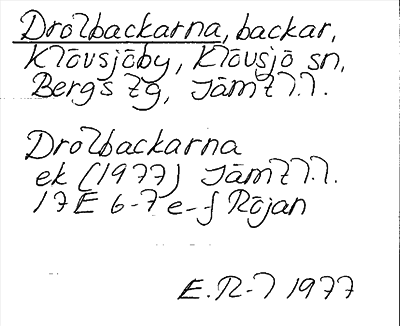 Drotbackarna, backar,
Klövsjöby, Klövsjö sn,
Bergs tg, Jämtl.l.
Drotbackarna
ek (1977) Jämtl.l.
17E 6-7 e-f Röjan
E.R-l 1977